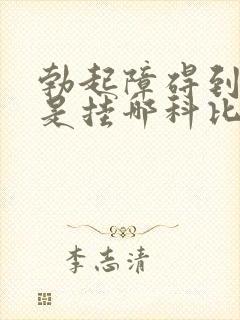 勃起障碍到
是挂哪科比
李志清